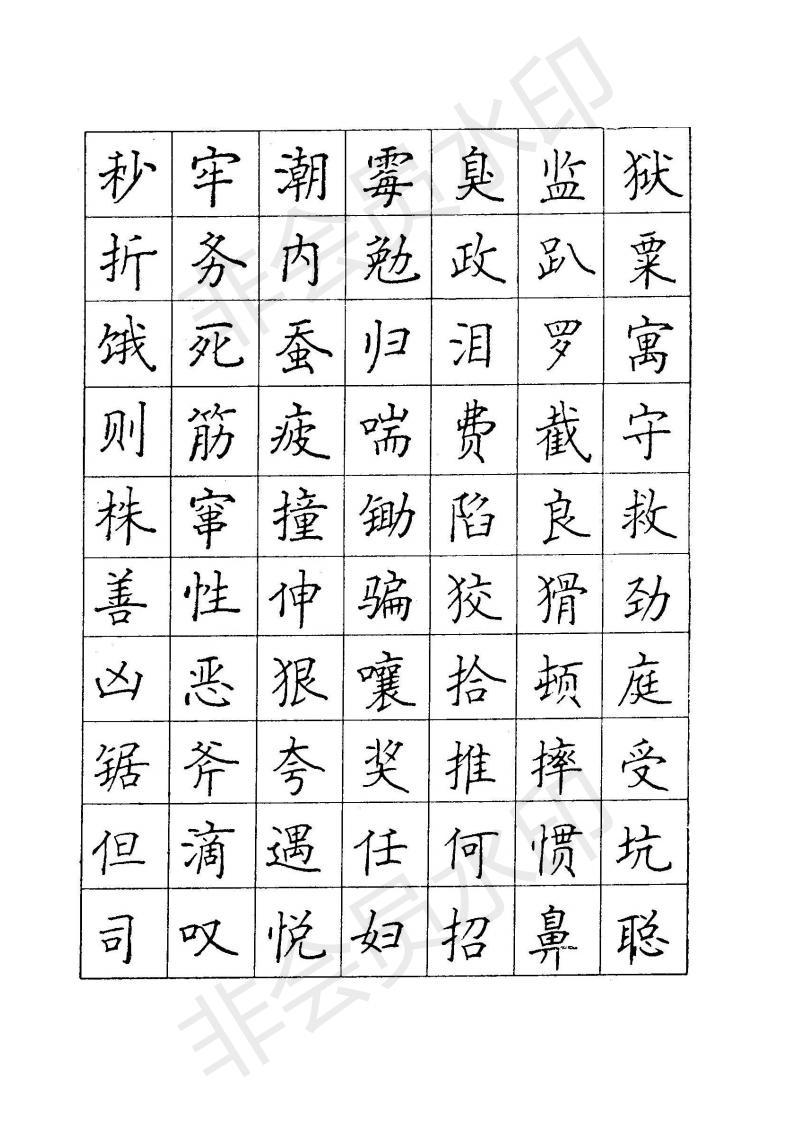 秒 牢 潮 霉 臭 监 狱
折 务 内 勉 政 趴 粟
饿 死 蚕 归 泪 罗 寓
则 筋 疲 喘 费 截 守
株 窜 撞 锄 陷 良 救
善 性 伸 骗 狡 猾 劲
凶 恶 狠 嚷 拾 顿 庭
锯 斧 夸 奖 推 摔 受
但 滴 遇 任 何 惯 坑
司 叹 悦 妇 招 鼻 聪
非会员水印
非会员水印